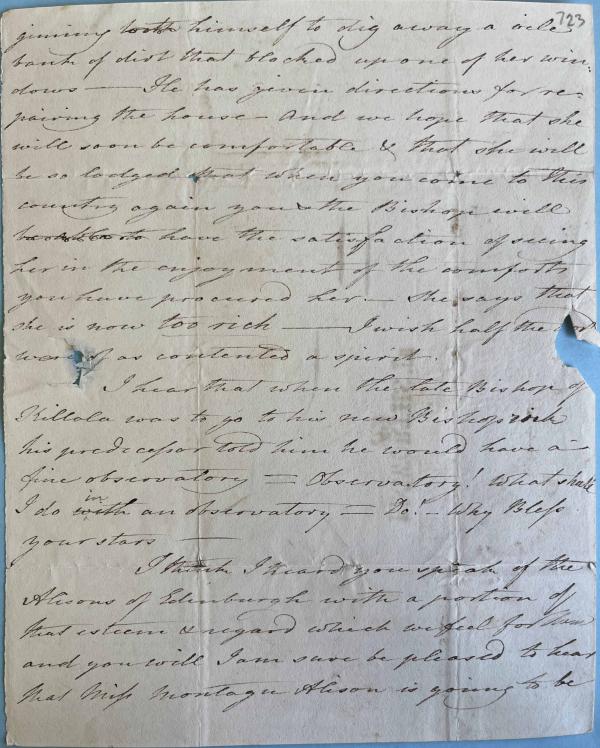 723
joining with himself to dig away a vile
bank of dirt that blocked up one of her win-
dows — He has given directions for re-
pairing the house - And we hope that she
will soon be comfortable & that she will
be so lodged that when you come to this
country again you & the Bishop will
to have the satisfaction of seeing
her in the enjoyment of the comforts
you have procured her. — She says that
she is now too rich — I wish half the
were of as contented a spirit.
I hear that when the late Bishop of
Killala was to go to his new Bishoprick
his predecessor told him he would have a
fine observatory = Observatory! What should
I do with in an observatory = Do! - Why Bless
your stars —
I think I heard you speak of the
Alisons of Edinburgh with a portion of
that esteem & regard which we feel for them
and you will I am sure be pleased to hear
that Miss Montagu Alison is going to be